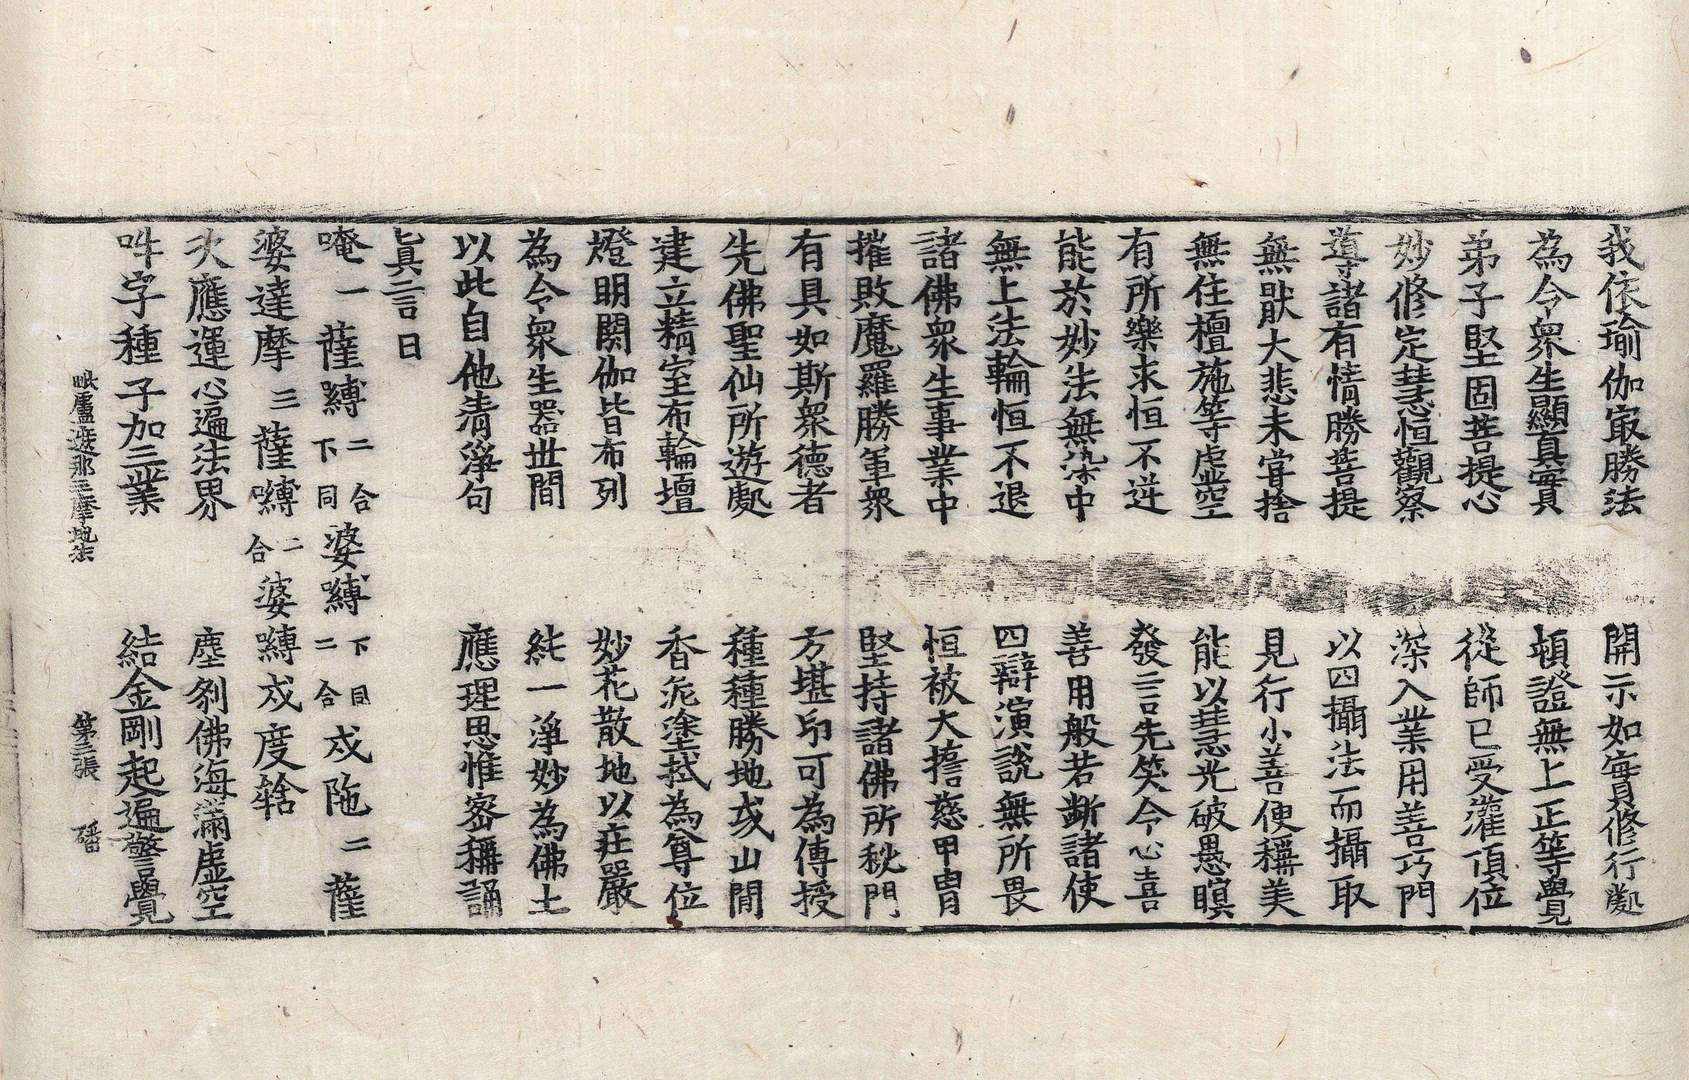 我依瑜伽㝡勝法　開示如實修行處
為令衆生顯真實　頓證無上正等覺
弟子堅固菩提心　從師已受灌頂位
妙修定慧恒觀察　深入業用善巧門
導諸有情勝菩提　以四攝法而攝取
無猒大悲未甞捨　見行小善便稱美
無住檀施等虛空　能以慧光破愚暝
有所樂求恒不逆　發言先笑令心喜
能於妙法無染中　善用般若斷諸使
無上法輪恒不退　四辯演說無所畏
諸佛衆生事業中　恒被大擔慈甲冑
摧敗魔羅勝軍衆　堅持諸佛所秘門
有具如斯衆德者　方堪印可為傳授
先佛聖仙所遊處　種種勝地或山間
建立精室布輪壇　香泥塗拭為尊位
燈明閼伽皆布列　妙花散地以莊嚴
為令衆生器世間　純一淨妙為佛土
以此自他清淨句　應理思惟密稱誦
真言曰
唵一薩嚩二合下同婆嚩下同二合戍陁二薩
婆達摩三薩嚩二合婆嚩戍度䇶
次應運心遍法界　塵剎佛海滿虛空
吽字種子加三業　結金剛起遍警覺
毗盧遮那三摩地法　第三張　磻